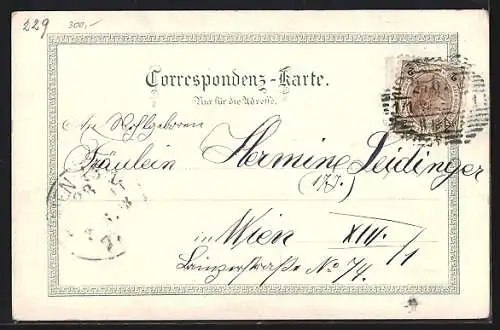 229
300,-
Correspondenz-Karte.
Nur für die Adresse.
An Wohlgeboren
Fräulein Hermine Leidinger
(177.)
in Wien XIII/1
Lainzerstraße No 74.